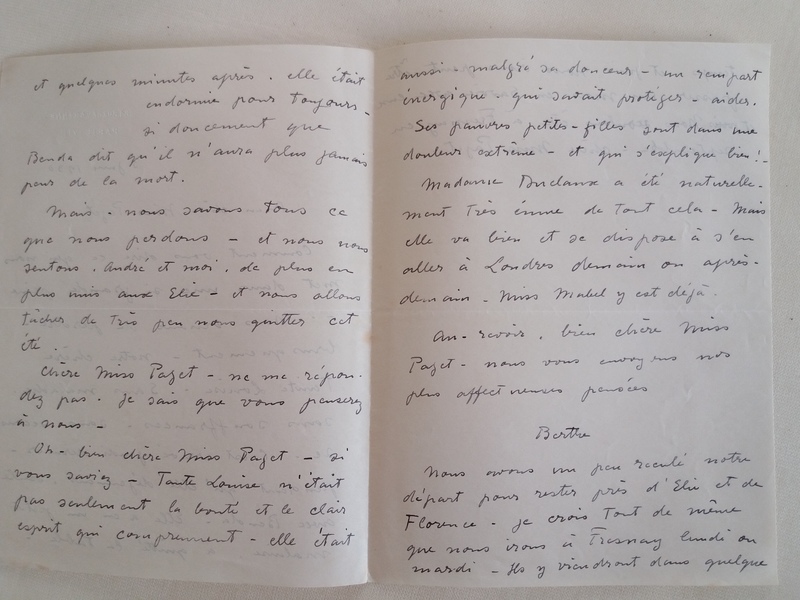 et quelques minutes après. elle était
endormie pour toujours -
si doucement que
Benda dit qu'il n'aura plus jamais
peur de la mort.
Mais - nous savons tous ce
que nous perdons - et nous nous
sentons. André et moi. de plus en
plus unis aux Elie - et nous allons
tâcher de très peu nous quitter cet
été.
Chère Miss Paget - ne me répon-
dez pas. je sais que vous penserez
à nous -
Oh - bien chère Miss Paget - si
vous saviez - Tante Louise n'était
pas seulement la bonté et le clair
esprit qui comprennent - elle était
aussi - malgré sa douceur - un rempart
énergique - qui savait protéger - aider.
Ses pauvres petites-filles sont dans une
douleur extrême - et qui s'explique bien !-
Madame Duclaux a été naturelle-
ment très émue de tout cela - Mais
elle va bien et se dispose à s'en
aller à Londres demain ou après-
demain - Miss Mabel y est déjà.
Au-revoir. bien chère Miss
Paget - nous vous envoyons nos
plus affectueuses pensées
Berthe
Nous avons un peu reculé notre
départ pour rester près d'Elie et de
Florence - je crois tout de même
que nous irons à Fresnay lundi ou
mardi - Ils y viendront dans quelque